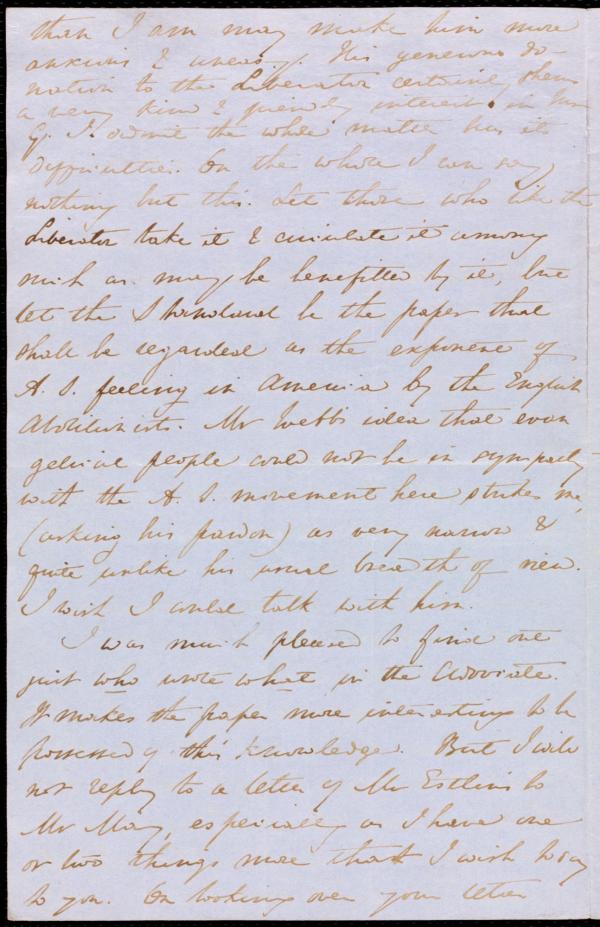 than I am may make him more
anxious & uneasy. His generous do-
nation to the Liberator certainly shows
a very kind & friendly interest in Mr
G. I admit the whole matter has its
difficulties. On the whole I can say
nothing but this. Let those who like the
Liberator take it & circulate it among
such as may be benefitted by it, but
let the Standard be the paper that
shall be regarded as the exponent of
A. S. feeling in America by the English
Abolitionists. Mr Webb's idea that evan
gelical people could not be in sympathy
with the A. S. movement here strikes me,
(asking his pardon) as very narrow &
quite unlike his usual breadth of view.
I wish I could talk with him.
I was much pleased to find out
just who wrote what in the Advocate.
It makes the paper more interesting to be
possessed of this knowledge. But I will
not reply to a letter of Mr Estlin's to
Mr May, especially as I have one
or two things more that I wish to say
to you. On looking over your letter